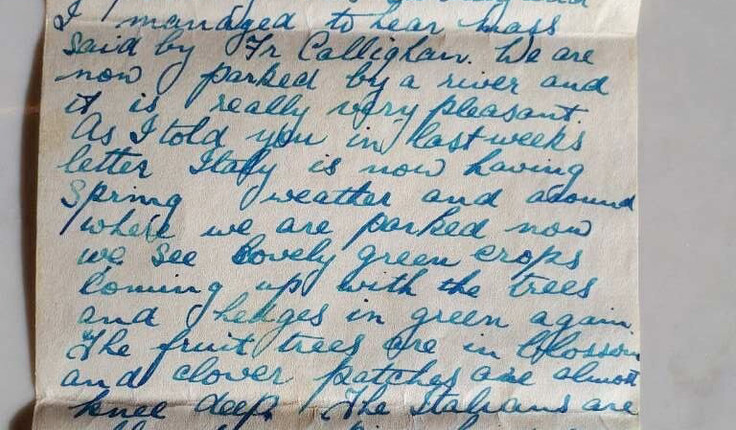 I managed to hear mass
said by Fr Callighan. We are
now parked by a river and
it is really very pleasant.
As I told you in last weeks
letter Italy is now having
Spring weather and around
where we are parked now
we see lovely green crops
coming up with the trees
and hedges in green again.
The fruit trees are in blossom
and clover patches are almost
knee deep. The Italians are